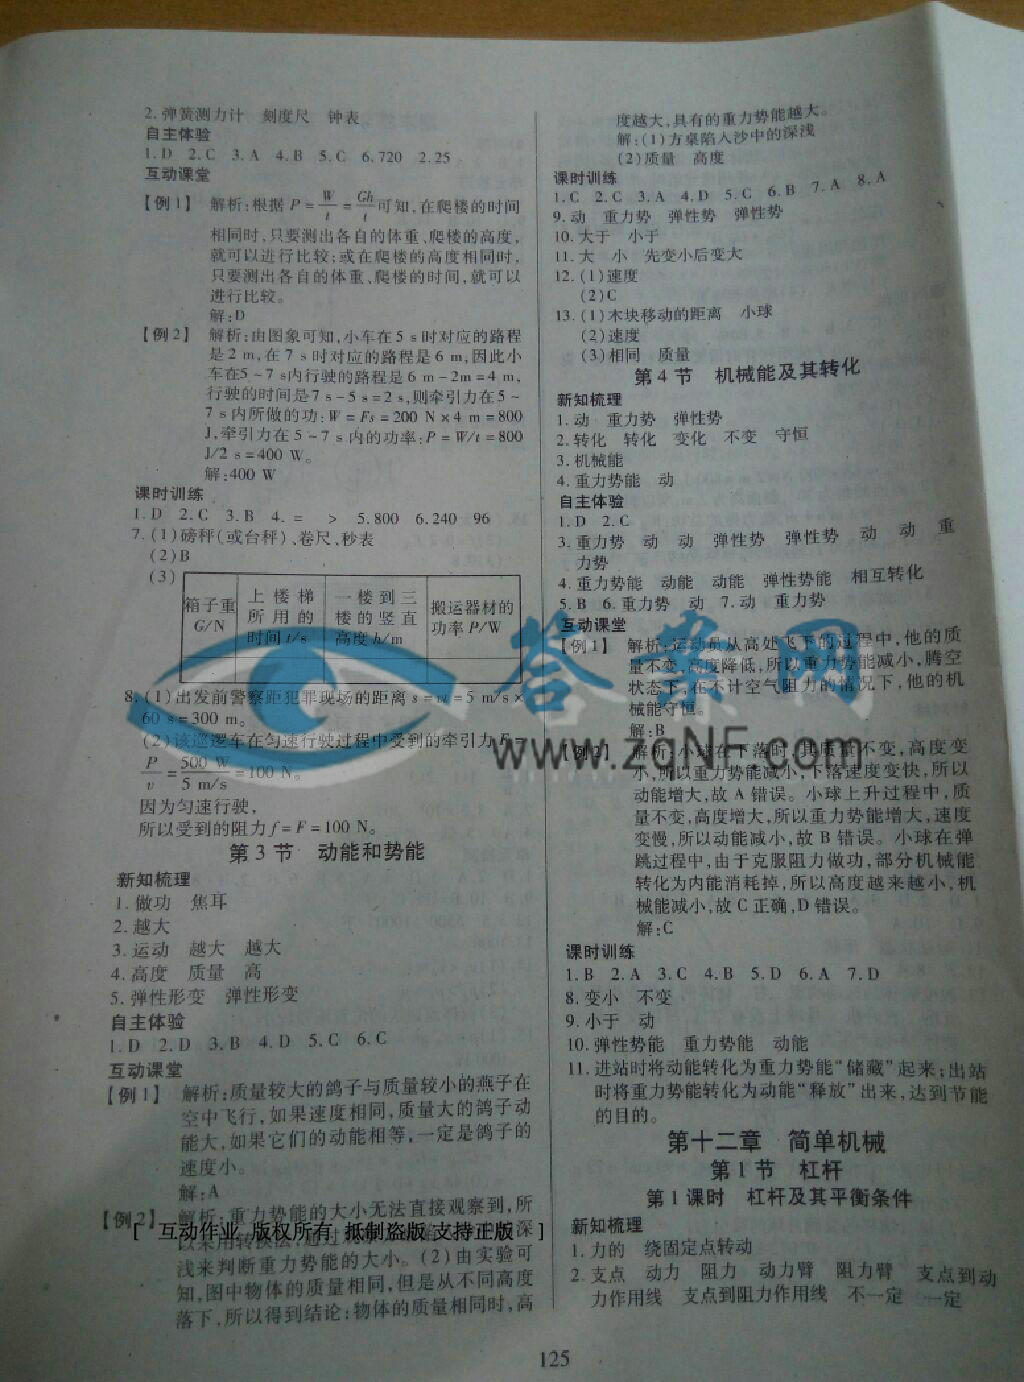 2.弹簧测力计 刻度尺 钟表
自主体验
1.D 2.C 3.A 4.B 5.C 6.720 2.25
互动课堂
【例1】 解析:根据P=W/t=Gh/t可知,在爬楼的时间
相同时,只要测出各自的体重、爬楼的高度,
就可以进行比较;或在爬楼的高度相同时,
只要测出各自的体重、爬楼的时间,就可以
进行比较。
解:D
【例2】 解析:由图象可知,小车在5 s时对应的路程
是2 m,在7 s时对应的路程是6 m,因此小
车在5~7 s内行驶的路程是6 m-2m=4 m,
行驶的时间是7 s-5 s=2 s,则牵引力在5~
7 s内所做的功:W=Fs=200 N×4 m=800
J,牵引力在5~7 s内的功率:P=W/t=800
J/2 s=400 W。
解:400 W
课时训练
1.D 2.C 3.B 4.= > 5.800 6.240 96
7.(1)磅秤(或台秤)、卷尺、秒表
(2)B
(3)
箱子重
G/N
上楼梯
所用的
时间t/s
一楼到三
楼的竖直
高度h/m
搬运器材的
功率P/W
8.(1)出发前警察距犯罪现场的距离s=vt=5 m/s×
60 s=300 m。
(2)该巡逻车在匀速行驶过程中受到的牵引力F=
P/v=500 W/5 m/s=100 N。
因为匀速行驶,
所以受到的阻力f=F=100 N。
第3节 动能和势能
新知梳理
1.做功 焦耳
2.越大
3.运动 越大 越大
4.高度 质量 高
5.弹性形变 弹性形变
自主体验
1.D 2.D 3.B 4.D 5.C 6.C
互动课堂
【例1】 解析:质量较大的鸽子与质量较小的燕子在
空中飞行,如果速度相同,质量大的鸽子动
能大,如果它们的动能相等,一定是鸽子的
速度小。
解:A
【例2】 解析:重力势能的大小无法直接观察到,所
以采用转换法,通过
深
[ 互动作业 版权所有 抵制盗版 支持正版 ]
浅来判断重力势能的大小。(2)由实验可
知,图中物体的质量相同,但是从不同高度
落下,所以得到结论:物体的质量相同时,高
度越大,具有的重力势能越大。
解:(1)方桌陷入沙中的深浅
(2)质量 高度
课时训练
1.C 2.C 3.A 4.D 5.C 6.B 7.A 8.A
9.动 重力势 弹性势 弹性势
10.大于 小于
11.大 小 先变小后变大
12.(1)速度
(2)C
13.(1)木块移动的距离 小球
(2)速度
(3)相同 质量
第4节 机械能及其转化
新知梳理
1.动 重力势 弹性势
2.转化 转化 变化 不变 守恒
3.机械能
4.重力势能 动
自主体验
1.D 2.C
3.重力势 动 动 弹性势 弹性势 动 动 重
力势
4.重力势能 动能 动能 弹性势能 相互转化
5.B 6.重力势 动 7.动 重力势
互动课堂
【例1】 解析:运动员从高处飞下的过程中,他的质
量不变,高度降低,所以重力势能减小,腾空
状态下,在不计空气阻力的情况下,他的机
械能守恒。
解:B
【例2】 解析:小球在下落时,其质量不变,高度变
小,所以重力势能减小,下落速度变快,所以
动能增大,故A错误。小球上升过程中,质
量不变,高度增大,所以重力势能增大,速度
变慢,所以动能减小,故B错误。小球在弹
跳过程中,由于克服阻力做功,部分机械能
转化为内能消耗掉,所以高度越来越小,机
械能减小,故C正确,D错误。
解:C
课时训练
1.B 2.A 3.C 4.B 5.D 6.A 7.D
8.变小 不变
9.小于 动
10.弹性势能 重力势能 动能
11.进站时将动能转化为重力势能“储藏”起来;出站
时将重力势能转化为动能“释放”出来,达到节能
的目的。
第十二章 简单机械
第1节 杠杆
第1课时 杠杆及其平衡条件
新知梳理
1.力的 绕固定点转动
2.支点 动力 阻力 动力臂 阻力臂 支点到动
力作用线 支点到阻力作用线 不一定 一定
125
答案网
www.zqNE.com